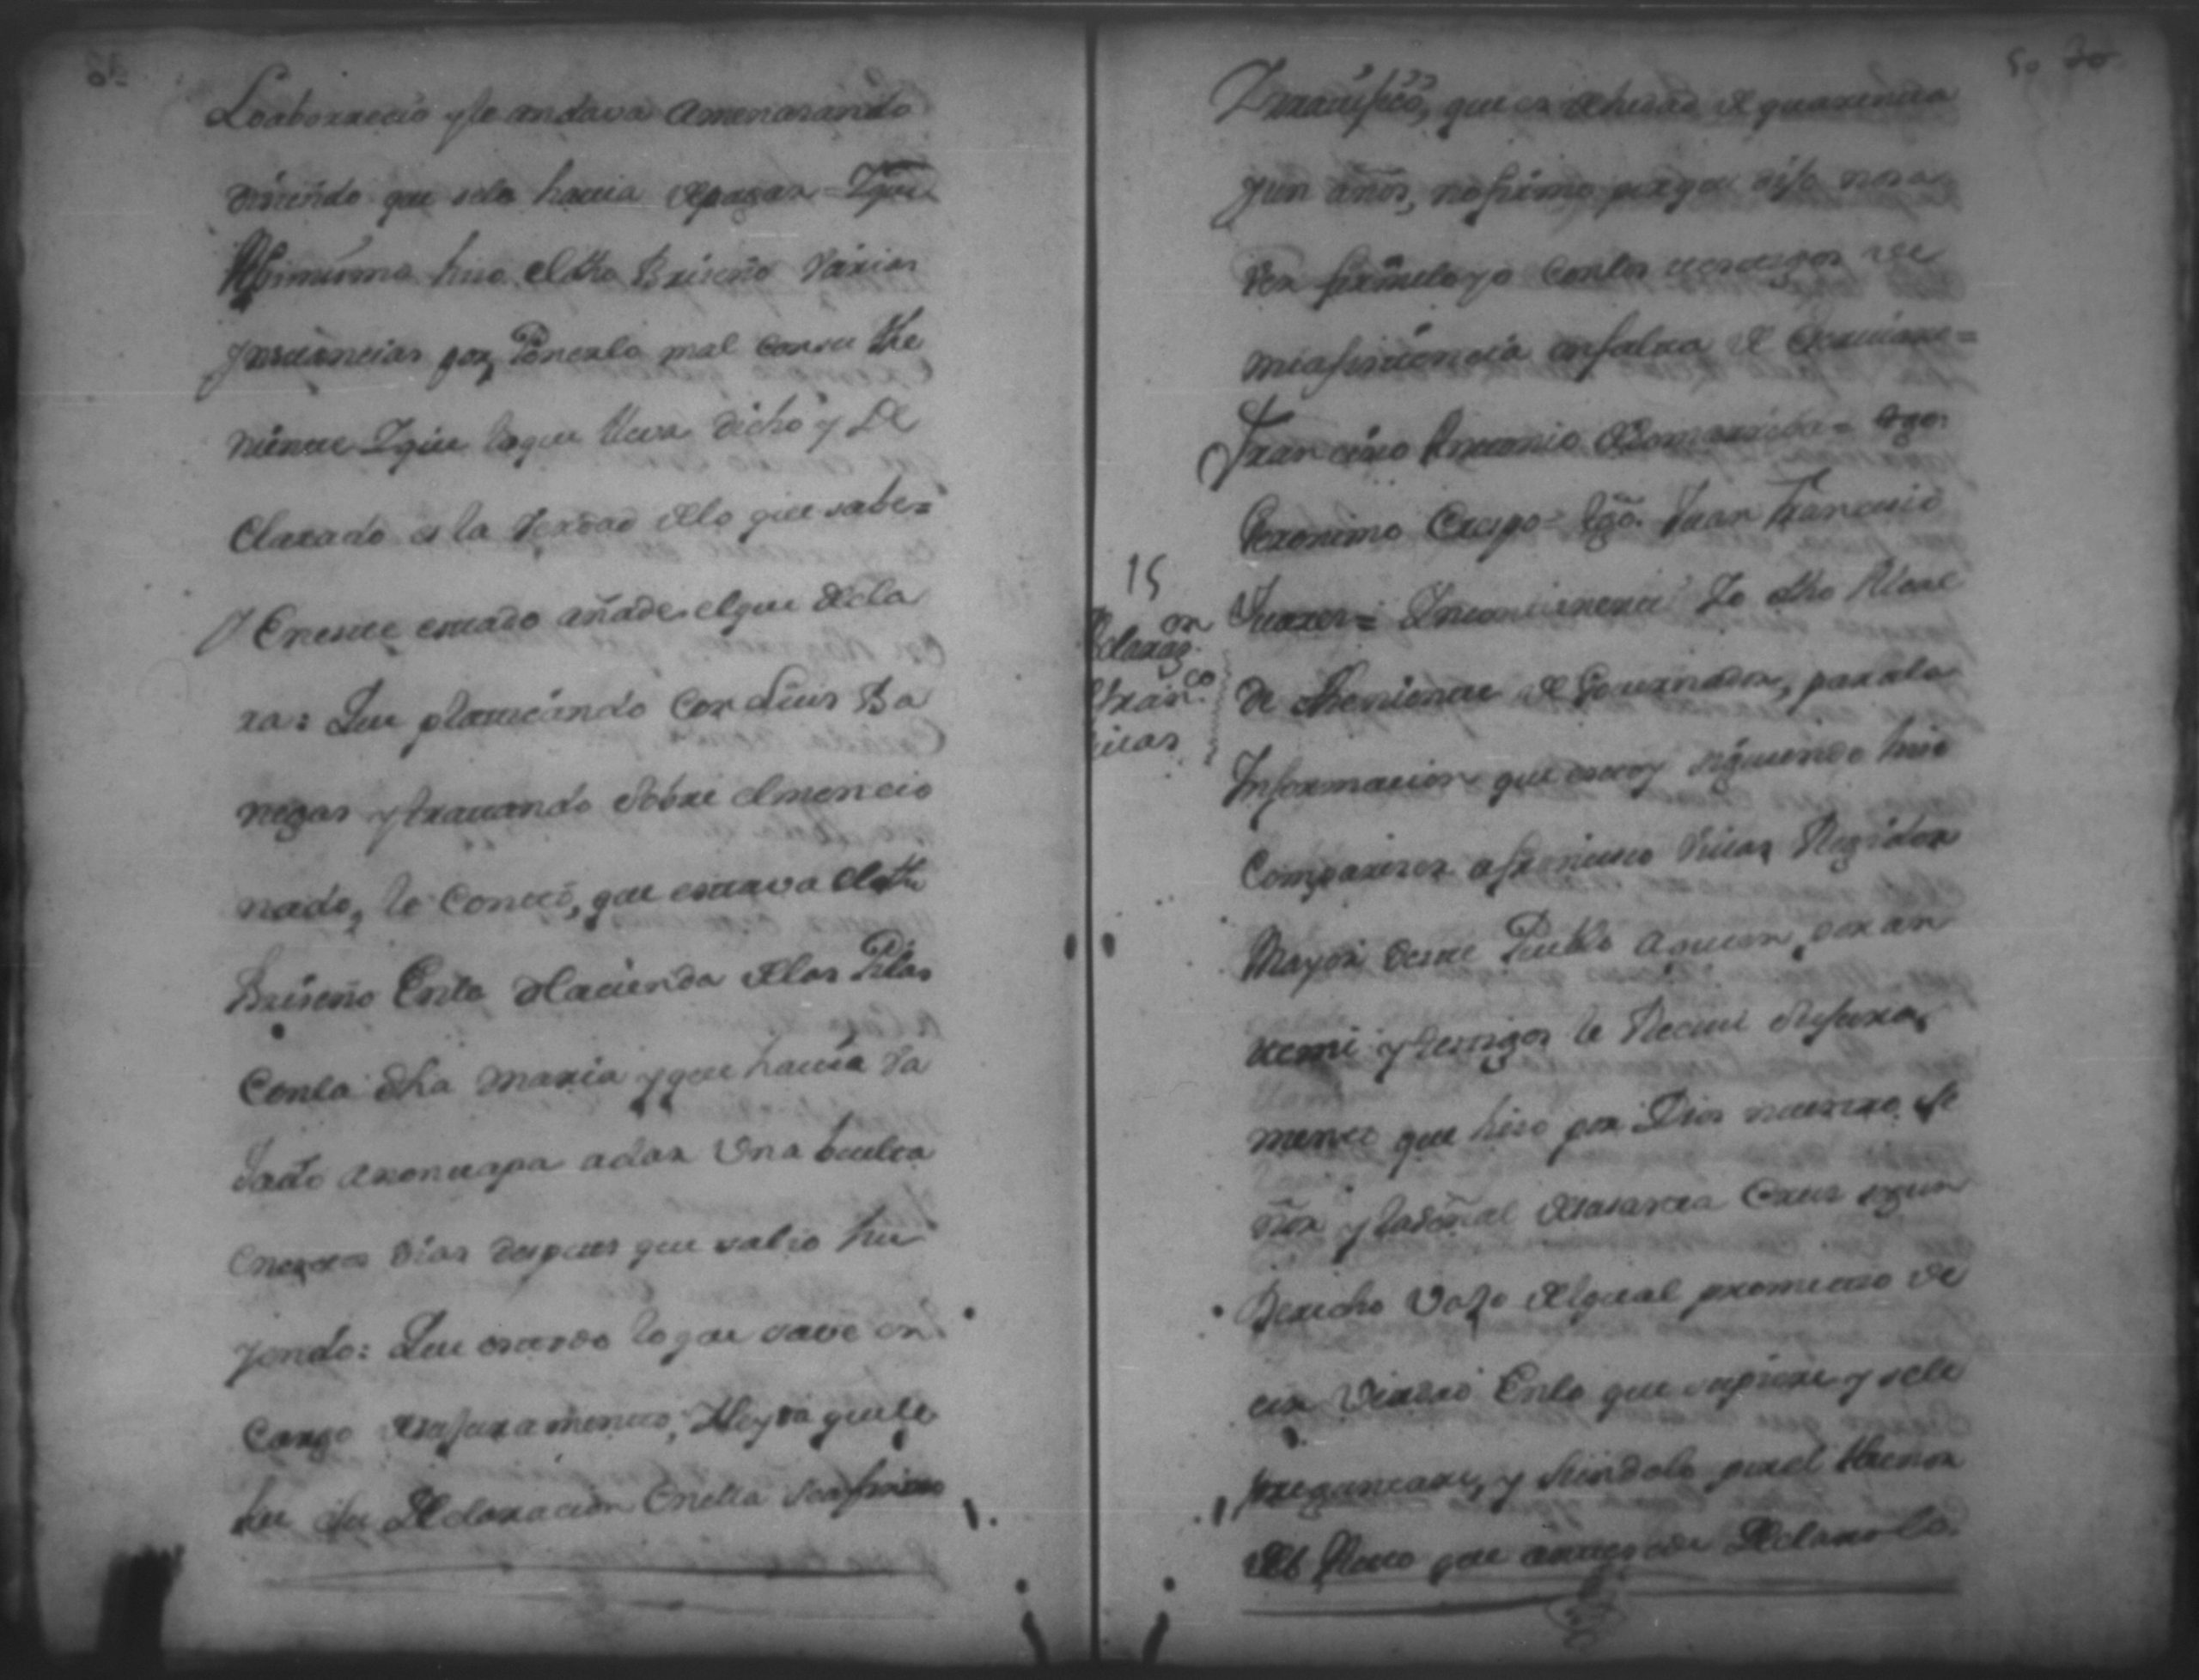 Loaborrecio y le andava amenasando
disiendo que selo havia de pagar = Y que
Asimismo hiso el dho Briseño varias
ynstancias por Ponerlo mal con su The
niente Y que lo que lleva dicho y De
Clarado es la verdad de lo que sabe =
Y En este estado añade el que decla
ra: Que platicando con Luis Ba
negas y tratando sobre el mencio
nado, le Conto, que estava el dho
Briseño En la Hacienda de las Pilas
Con la dha Maria y que havia va
jado a dar una buelta
Dias despues que salio hu
yendo: Que es todo lo que save en
Cargo de su juramento, Y leyda que le
fue su Declaracion En ella se afirmo
50 30
Y ratifico, que es de hedad de quarenta
y un años, no firmo porque dijo no sa
ver firmelo yo con los testigos de
mi asistencia en falta de Escrivano =
Francisco Antonio = tgo.
Geronimo Crespo = tgo. Juan Francisco
Suares = Incontinenti Yo dho Alcal
de Theniente de Governador, para la
Informacion que estoy siguiendo hise
Comparecer a francisco Vivas Regidor
Mayor de este Pueblo a quien, por an
te mi y testigos le Recivi de jura
mento que hiso por Dios nuestro Se
ñor y la señal de la santa Cruz segun
Derecho vajo del qual prometio de
cir Verdad En lo que supiere y se le
preguntare, y siendolo por el thenor
del Auto que antecede Declaro lo
15
Declaraz.on
Fran.co
Vivas